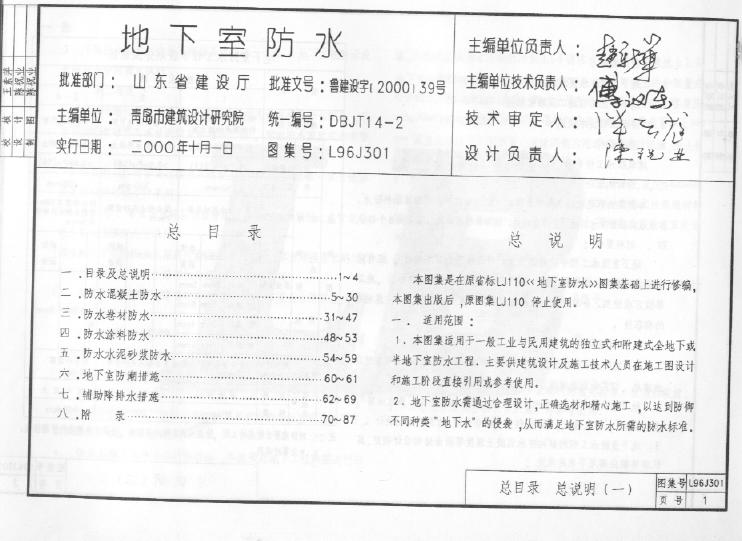 地下室防水
批准部门：山东省建设厅 批准文号：鲁建设字[2000]39号
主编单位：青岛市建筑设计研究院 统一编号：DBJT14-2
实行日期：二000年十月一日 图集号：L96J301
主编单位负责人：
主编单位技术负责人：
技术审定人：
设计负责人：
校核
设计
制图
总目录
一．目录及总说明……1~4
二．防水混凝土防水……5~30
三．防水卷材防水……31~47
四．防水涂料防水……48~53
五．防水水泥砂浆防水……54~59
六．地下室防潮措施……60~61
七．辅助降排水措施……62~69
八．附 录……70~87
总说明
本图集是在原省标LJ110<<地下室防水>>图集基础上进行修编，
本图集出版后，原图集LJ110 停止使用。
一． 适用范围：
1．本图集适用于一般工业与民用建筑的独立式和附建式全地下或
半地下室防水工程．主要供建筑设计及施工技术人员在施工图设计
和施工阶段直接引用或参考使用。
2．地下室防水需通过合理设计，正确选材和精心施工，以达到防御
不同种类“地下水”的侵袭，从而满足地下室防水所需的防水标准。
总目录 总说明（一）
图集号 L96J301
页号 1